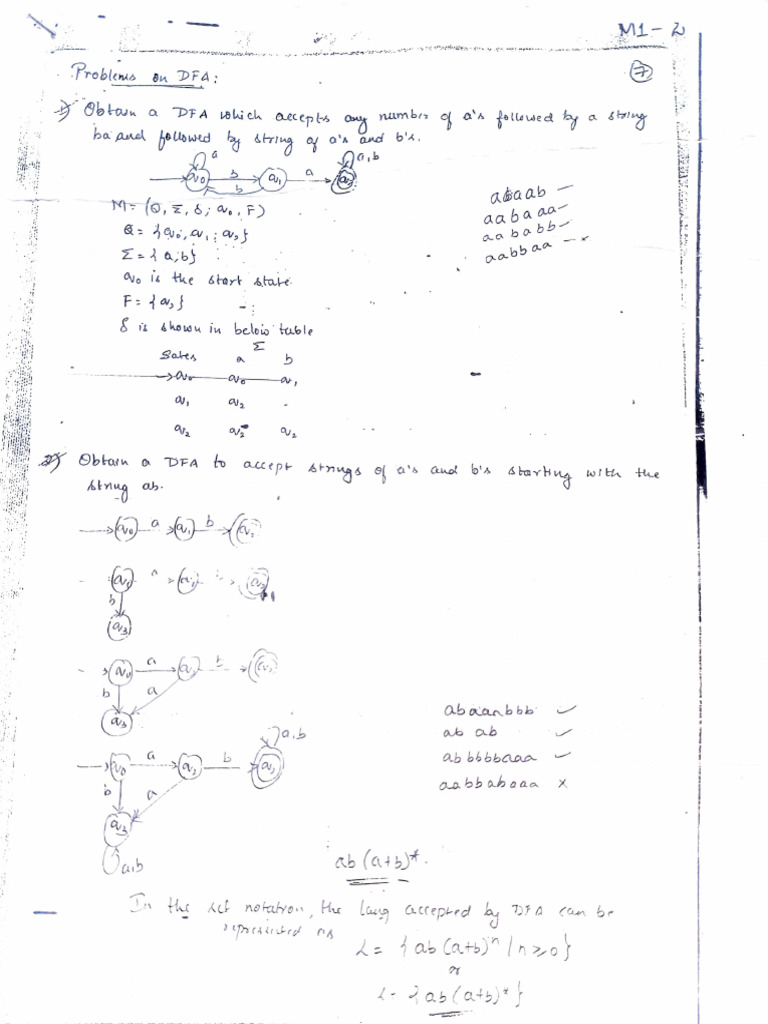 M1-2
7
Problems on DFA:
1) Obtain a DFA which accepts any number of a's followed by a string
ba and followed by string of a's and b's.
a a,b
q0 b q1 a q2
b
M = (Q, Σ, δ, q0, F)
Q = {q0, q1, q2}
Σ = {a,b}
q0 is the start state
F = {q2}
δ is shown in below table
Σ
States a b
→q0 q0 q1
q1 q2 -
q2 q2 q2
abaab
aabaaa
aababb
aabbaa x
2) Obtain a DFA to accept strings of a's and b's starting with the
string ab.
q0 a q1 b q2
b
q3
q0 a b
b a
q3
a,b
q0 a b
b a
a,b
abaaabbb ✓
ab ab ✓
abbbbbaaa ✓
aabbabaaa x
ab(a+b)*.
In the set notation, the lang accepted by DFA can be
represented as
L = {ab(a+b)ⁿ | n≥0}
or
L = {ab(a+b)*}